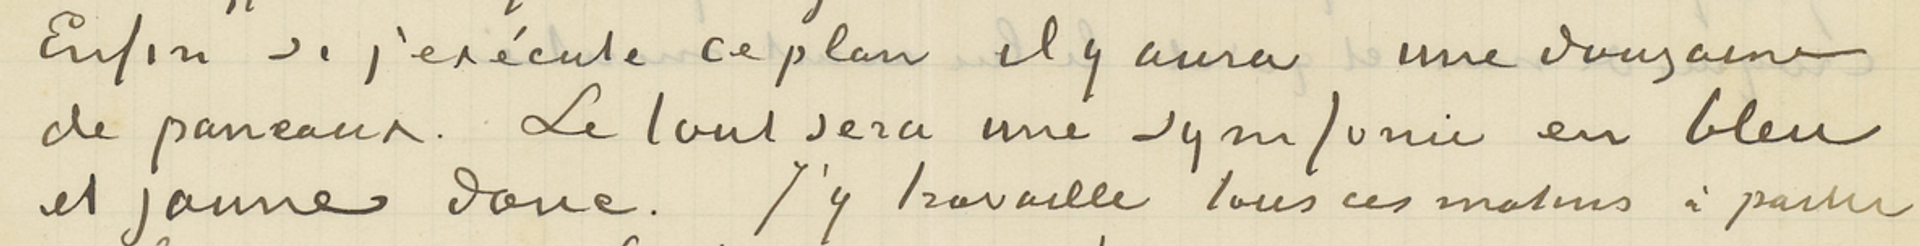 Enfin si j'exécute ce plan il y aura une douzaine
de panneaux. Le tout sera une symfonie en bleu
et jaune donc. J'y travaille tous ces matins à partir